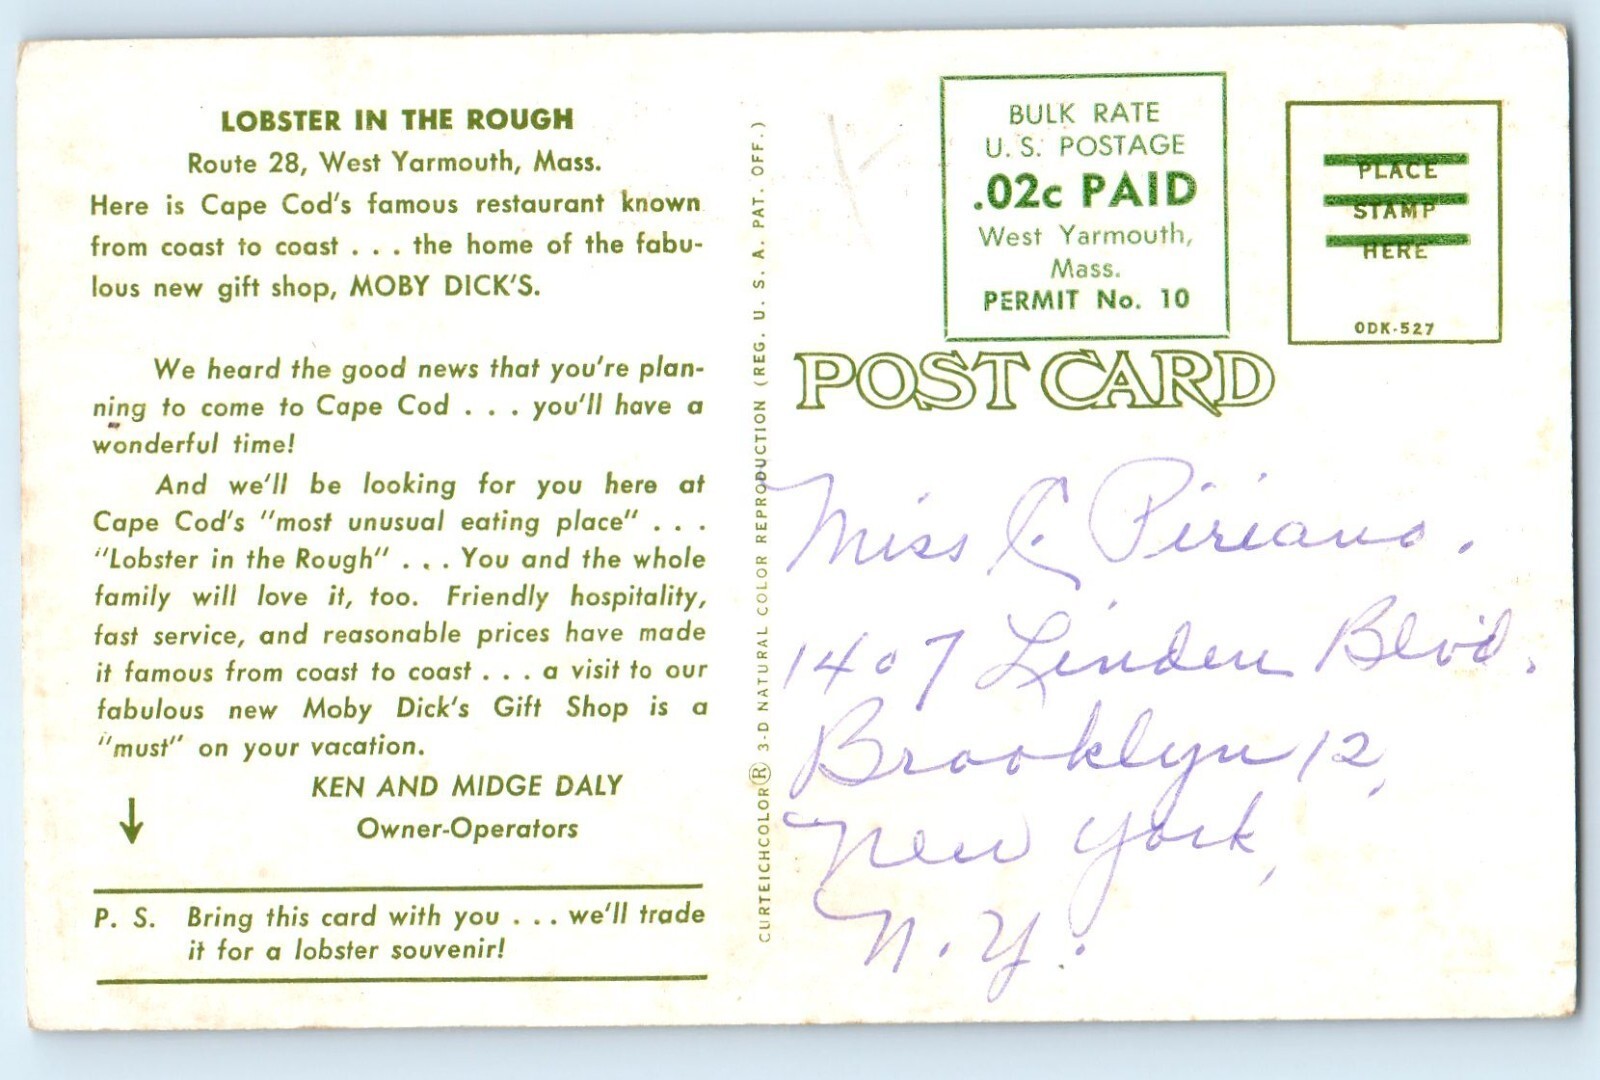 LOBSTER IN THE ROUGH
Route 28, West Yarmouth, Mass.
Here is Cape Cod's famous restaurant known
from coast to coast . . . the home of the fabu-
lous new gift shop, MOBY DICK'S.
We heard the good news that you're plan-
ning to come to Cape Cod . . . you'll have a
wonderful time!
And we'll be looking for you here at
Cape Cod's "most unusual eating place" . . .
"Lobster in the Rough" . . . You and the whole
family will love it, too. Friendly hospitality,
fast service, and reasonable prices have made
it famous from coast to coast . . . a visit to our
fabulous new Moby Dick's Gift Shop is a
"must" on your vacation.
KEN AND MIDGE DALY
Owner-Operators
P. S. Bring this card with you . . . we'll trade
it for a lobster souvenir!
CURTEICHCOLOR® 3-D NATURAL COLOR REPRODUCTION (REG. U. S. A. PAT. OFF.)
BULK RATE
U. S. POSTAGE
.02c PAID
West Yarmouth,
Mass.
PERMIT No. 10
PLACE
STAMP
HERE
ODK-527
POST CARD
Miss C. Piriano.
1407 Linden Blvd.
Brooklyn 12,
New York,
N.Y.